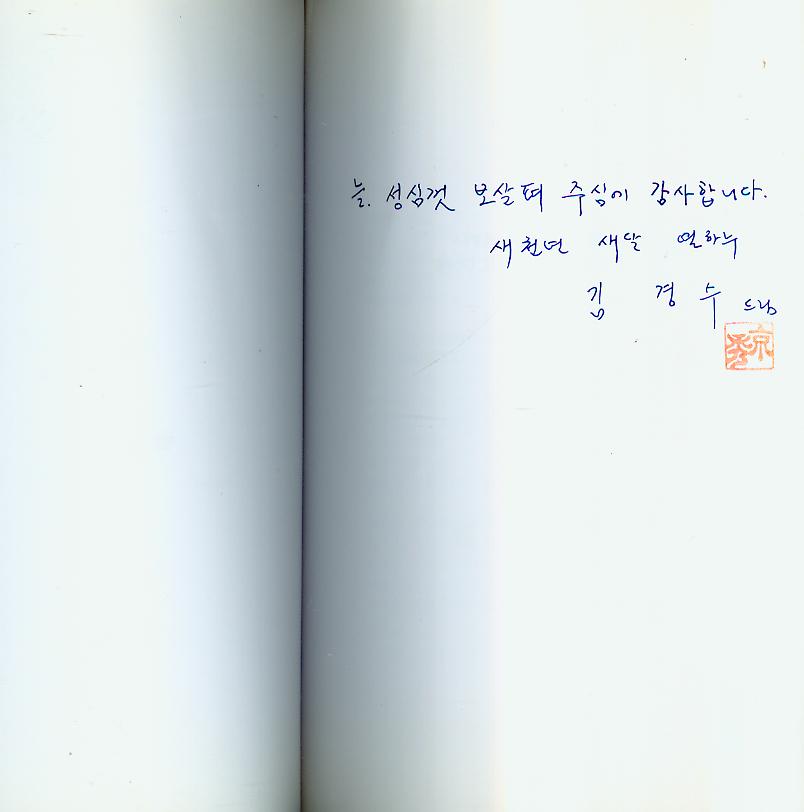 늘. 성심껏 보살펴 주심이 감사합니다.
새천년 새달 열하누
김 경 수 드림
京秀